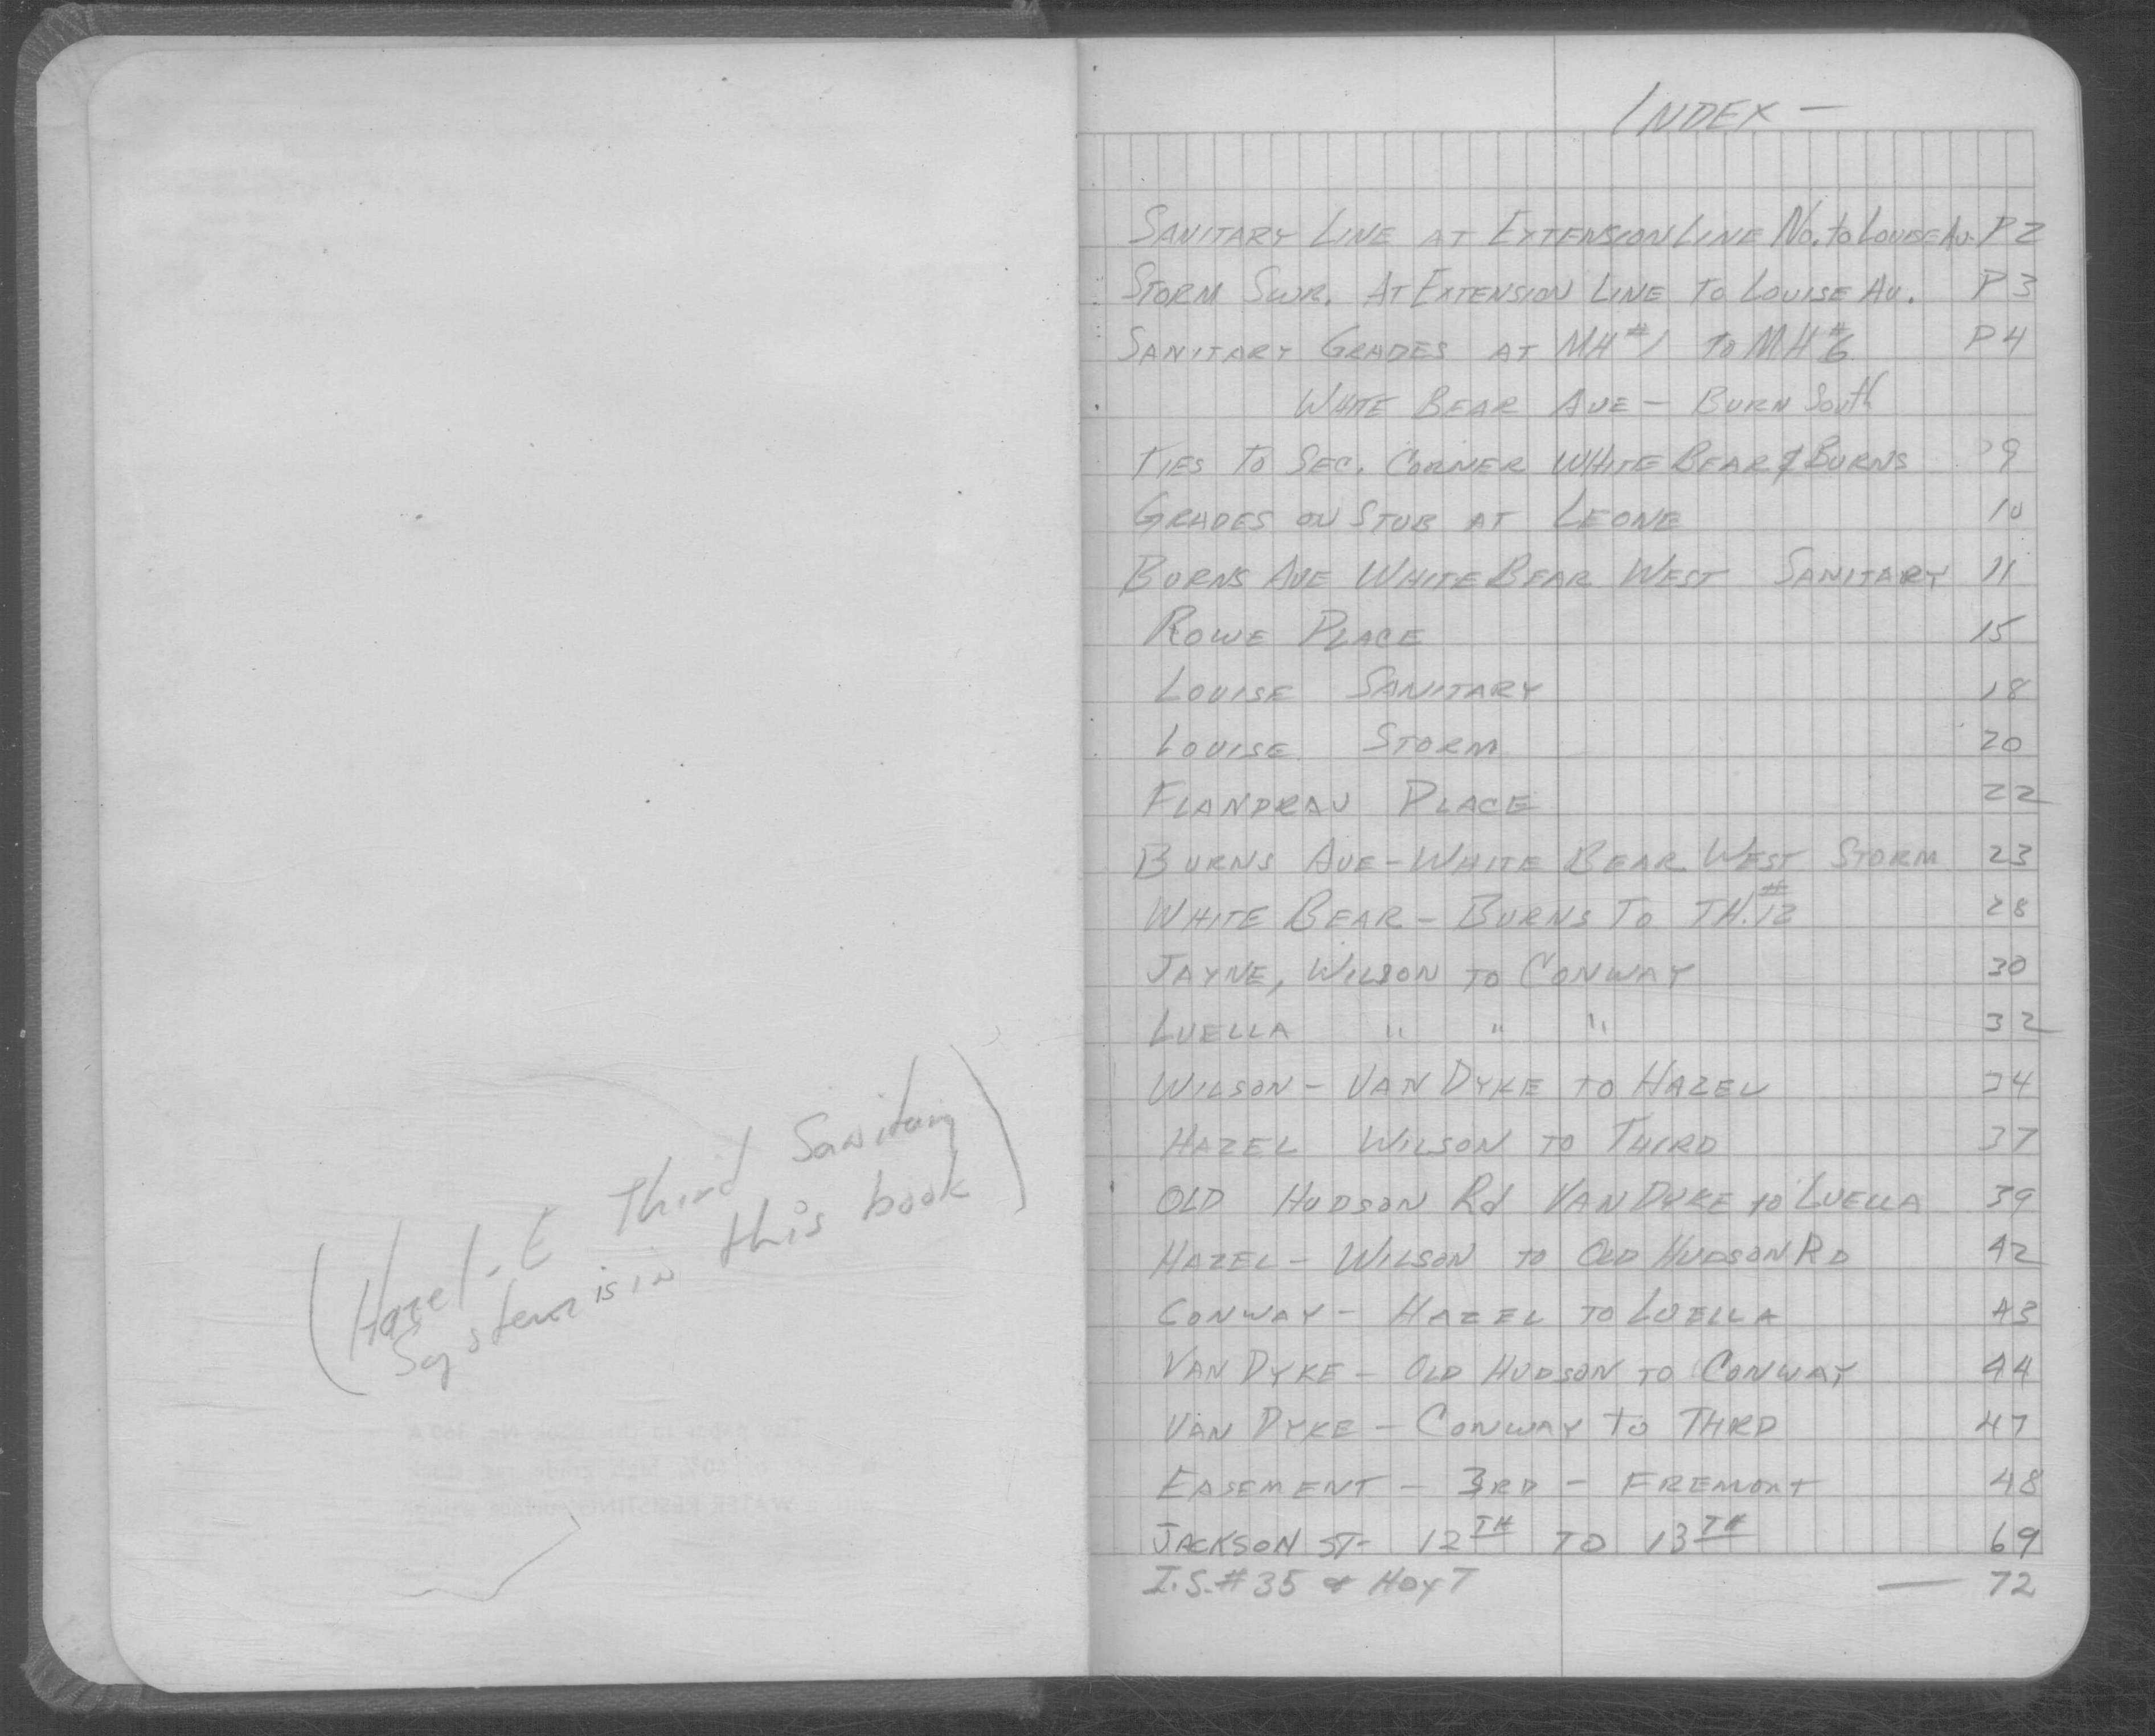 (Hazel - E Third Sanitary
System is in this book)
INDEX -
SANITARY LINE AT EXTENSION LINE NO. to LOUISE AV. P2
STORM SWR. AT EXTENSION LINE TO LOUISE AV. P3
SANITARY GRADES AT MH #1 TO MH #6 P4
WHITE BEAR AVE - BURN South
TIES TO SEC. CORNER WHITE BEAR & BURNS 9
GRADES ON STUB AT LEONE 10
BURNS AVE WHITE BEAR WEST SANITARY 11
ROWE PLACE 15
LOUISE SANITARY 18
LOUISE STORM 20
FLANDRAU PLACE 22
BURNS AVE - WHITE BEAR WEST STORM 23
WHITE BEAR - BURNS TO TH. #12 28
JAYNE, WILSON TO CONWAY 30
LUELLA " " " 32
WILSON - VAN DYKE TO HAZEL 34
HAZEL WILSON TO THIRD 37
OLD HUDSON Rd VAN DYKE to LUELLA 39
HAZEL - WILSON TO OLD HUDSON RD 42
CONWAY - HAZEL TO LUELLA 43
VAN DYKE - OLD HUDSON TO CONWAY 44
VAN DYKE - CONWAY to THIRD 47
EASEMENT - 3RD - FREMONT 48
JACKSON ST- 12TH TO 13TH 69
I.S. #35 & HOYT — 72